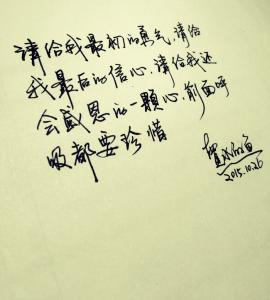 请给我最初的勇气,请给
我最后的信心,请给我还
会感恩的一顆心,前面呼
吸都要珍惜
2015.10.26